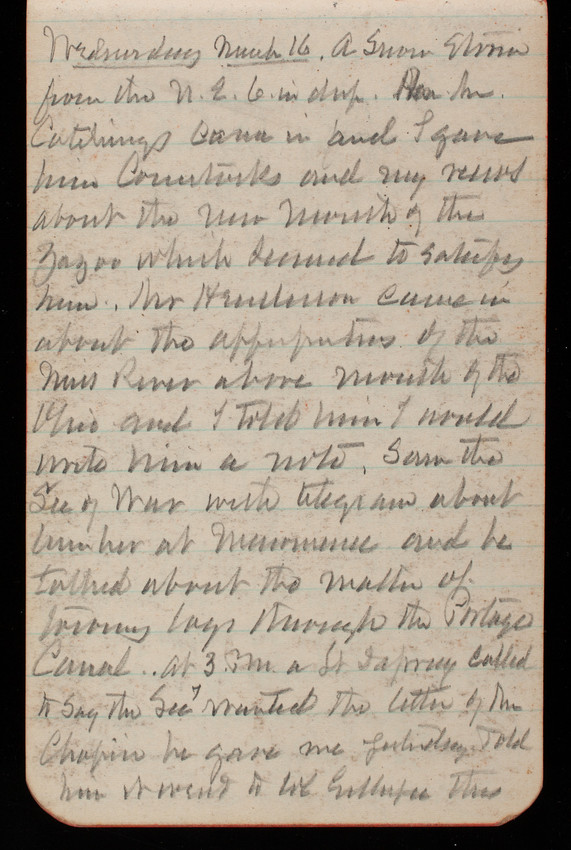 Wednesday March 16. A Snow Storm
from the N.E. 6 in deep. Mr.
Catchings came in and I gave
him Comstocks and my views
about the new mouth of the
Yazoo which seemed to satisfy
him. Mr Henderson came in
about the of the
Miss River above mouth of the
Ohio and I told him I would
write him a note. Saw the
Sec of War with telegram about
lumber at Menominee and he
talked about the matter of
logs through the Portage
Canal.. at 3 PM a Lt called
to say the Secy wanted the letter of Mr
Chapin he gave me yesterday Told
him it went to Col Gillespie this